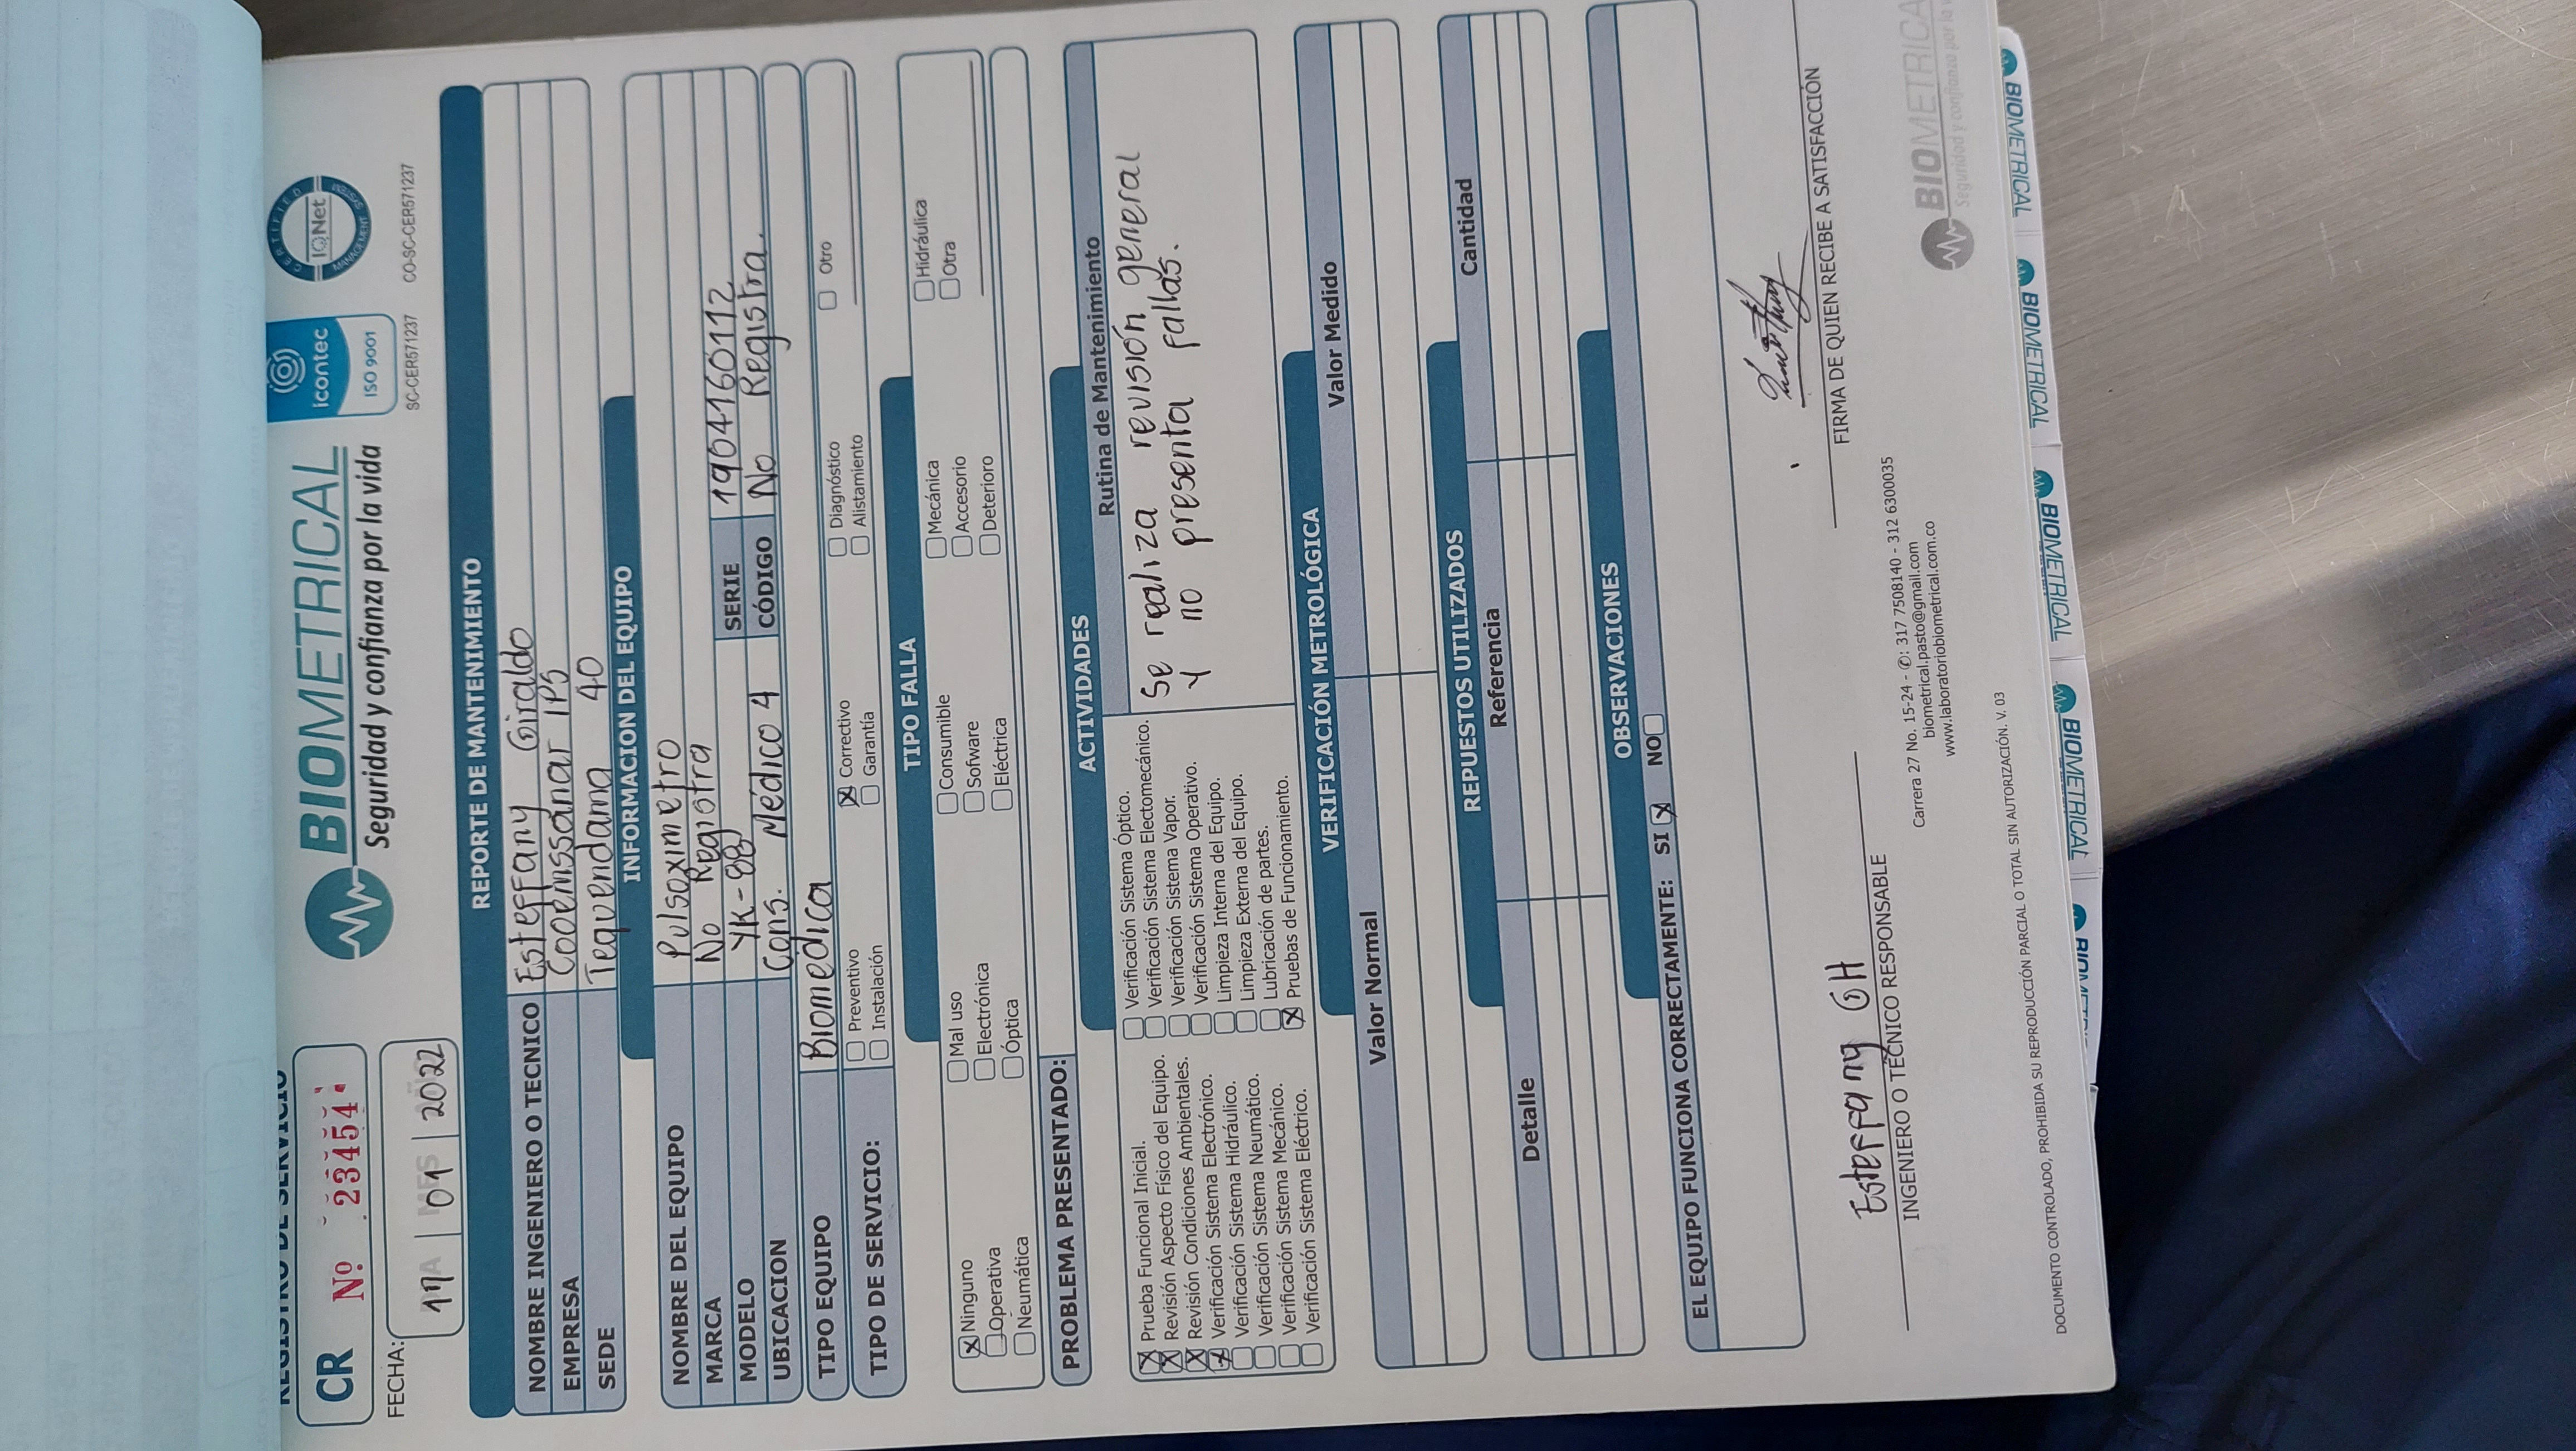 REGISTRO DE SERVICIO
CR Nº 23454
FECHA: 17 01 2022
BIOMETRICAL
Seguridad y confianza por la vida
icontec
ISO 9001
SC-CER571237
CERTIFIED
IQNet
MANAGEMENT SYSTEM
CO-SC-CER571237
REPORTE DE MANTENIMIENTO
NOMBRE INGENIERO O TECNICO Esteffany Giraldo
EMPRESA Cooemssanar IPS
SEDE Tequendama 40
INFORMACION DEL EQUIPO
NOMBRE DEL EQUIPO Pulsoximetro
MARCA No Registra
MODELO YK-88 SERIE 1904160112
UBICACION Cons. Médico 4 CÓDIGO No Registra.
TIPO EQUIPO Biomedica
TIPO DE SERVICIO:
Preventivo Correctivo Diagnóstico Otro
Instalación Garantía Alistamiento
TIPO FALLA
Ninguno Mal uso Consumible Mecánica Hidráulica
Operativa Electrónica Sofware Accesorio Otra
Neumática Óptica Eléctrica Deterioro
PROBLEMA PRESENTADO:
ACTIVIDADES
Prueba Funcional Inicial.
Revisión Aspecto Físico del Equipo.
Revisión Condiciones Ambientales.
Verificación Sistema Electrónico.
Verificación Sistema Hidráulico.
Verificación Sistema Neumático.
Verificación Sistema Mecánico.
Verificación Sistema Eléctrico.
Verificación Sistema Óptico.
Verificación Sistema Electomecánico.
Verificación Sistema Vapor.
Verificación Sistema Operativo.
Limpieza Interna del Equipo.
Limpieza Externa del Equipo.
Lubricación de partes.
Pruebas de Funcionamiento.
Rutina de Mantenimiento
Se realiza revisión general
y no presenta fallas.
VERIFICACIÓN METROLÓGICA
Valor Normal Valor Medido
REPUESTOS UTILIZADOS
Detalle Referencia Cantidad
OBSERVACIONES
EL EQUIPO FUNCIONA CORRECTAMENTE: SI NO
Esteffany GH
INGENIERO O TÉCNICO RESPONSABLE
FIRMA DE QUIEN RECIBE A SATISFACCIÓN
Carrera 27 No. 15-24 - ✆: 317 7508140 - 312 6300035
biometrical.pasto@gmail.com
www.laboratoriobiometrical.com.co
BIOMETRICA
Seguridad y confianza por la v
DOCUMENTO CONTROLADO, PROHIBIDA SU REPRODUCCIÓN PARCIAL O TOTAL SIN AUTORIZACIÓN. V. 03
BIOMETRICAL
BIOMETRICAL
BIOMETRICAL
BIOMETRICAL